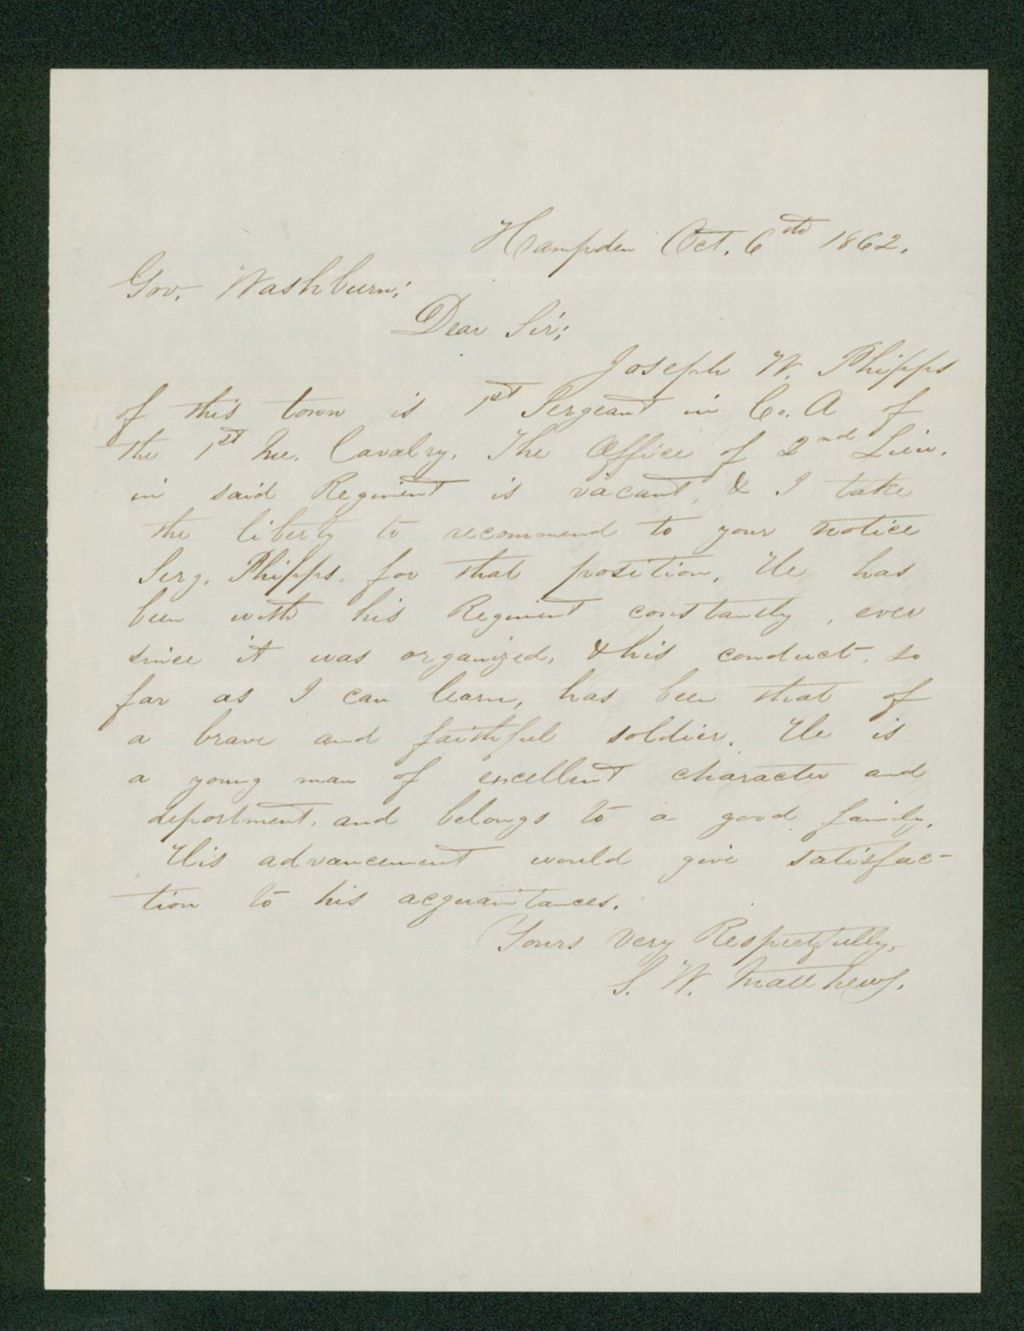 Hampden Oct. 6th 1862.
Gov. Washburn;
Dear Sir;
Joseph W. Phipps
of this town is 1st Sergeant in Co. A of
the 1st Me. Cavalry. The Office of 2nd Lieu.
in said Regiment is vacant, & I take
the liberty to recommend to your notice
Serg. Phipps. for that position. He has
been with his Regiment constantly, ever
since it was organized, & his conduct, so
far as I can learn, has been that of
a brave and faithful soldier. He is
a young man of excellent character and
deportment, and belongs to a good family.
His advancement would give satisfac-
tion to his acquaintances.
Yours Very Respectfully,
S. W. Matthews.